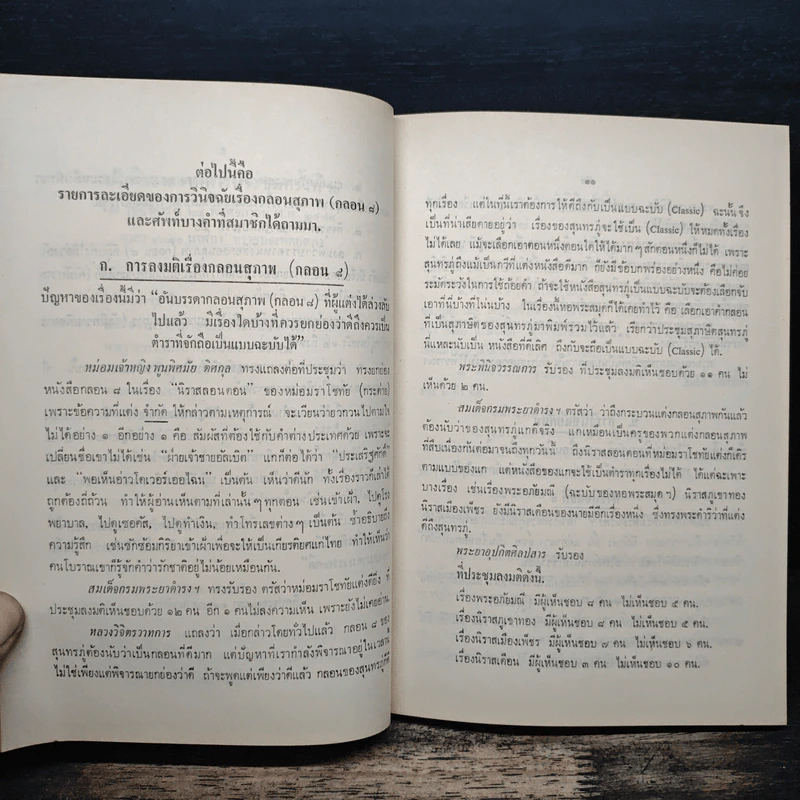 ต่อไปนี้คือ
รายการละเอียดของการวินิจฉัยเรื่องกลอนสุภาพ (กลอน ๘)
และศัพท์บางคำที่สมาชิกได้ถามมา.
ก. การลงมติเรื่องกลอนสุภาพ (กลอน ๘)
ปัญหาของเรื่องนี้มีว่า “อันบรรดากลอนสุภาพ (กลอน ๘) ที่ผู้แต่งได้ล่วงลับ
ไปแล้ว มีเรื่องใดบ้างที่ควรยกย่องว่าดีถึงควรเป็น
ตำราที่จักถือเป็นแบบฉะบับได้”
หม่อมเจ้าหญิง พูนพิศมัย ดิศกุล ทรงแถลงต่อที่ประชุมว่า ทรงยกย่อง
หนังสือกลอน ๘ ในเรื่อง “นิราสลอนดอน” ของหม่อมราโชทัย (กระต่าย)
เพราะข้อความที่แต่ง จำกัด ให้กล่าวตามเหตุการณ์ จะเวียนว่ายวกวนไปตามใจ
ไม่ได้อย่าง ๑ อีกอย่าง ๑ คือ สัมผัสที่ต้องใช้กับคำต่างประเทศด้วย เพราะจะ
เปลี่ยนชื่อเขาไม่ได้เช่น “ฝ่ายเจ้าชายอัลเบิต” แกก็ต่อได้ว่า “ประเสริฐศักดิ์”
และ “พอเห็นอ่าวโดเวอร์เออไฉน” เป็นต้น เห็นว่าดีนัก ทั้งเรื่องราวก็เล่าได้
ถูกต้องถี่ถ้วน ทำให้ผู้อ่านเห็นตามที่เล่านั้นๆ ทุกตอน เช่นเข้าเฝ้า, ไปดูโรง
พยาบาล, ไปดูเซอคัส, ไปดูทำเงิน, ทำโทรเลขต่างๆ เป็นต้น ซ้ำอธิบายถึง
ความรู้สึก เช่นซักซ้อมกิริยาเข้าเฝ้าเพื่อจะให้เป็นเกียรติยศแก่ไทย ทำให้เห็นว่า
คนโบราณเขาก็รู้จักคำว่ารักชาติอยู่ไม่น้อยเหมือนกัน.
สมเด็จกรมพระยาดำรงฯ ทรงรับรอง ตรัสว่าหม่อมราโชทัยแต่งดียิ่ง ที่
ประชุมลงมติเห็นชอบด้วย ๑๒ คน อีก ๑ คนไม่ลงความเห็น เพราะยังไม่เคยอ่าน
หลวงวิจิตรวาทการ แถลงว่า เมื่อกล่าวโดยทั่วไปแล้ว กลอน ๘ ของ
สุนทรภู่ต้องนับว่าเป็นกลอนที่ดีมาก แต่ปัญหาที่เรากำลังพิจารณาอยู่ในเวลานี้
ไม่ใช่เพียงแต่พิจารณายกย่องว่าดี ถ้าจะพูดแต่เพียงว่าดีแล้ว กลอนของสุนทรภู่ก็ดี
๑๑
ทุกเรื่อง แต่ในที่นี้เราต้องการให้ดีถึงกับเป็นแบบฉะบับ (Classic) ฉะนั้น จึง
เป็นที่น่าเสียดายอยู่ว่า เรื่องของสุนทรภู่ จะใช้เป็น (Classic) ให้หมดทั้งเรื่อง
ไม่ได้เลย แม้จะเลือกเอาตอนหนึ่งตอนใดให้ได้มากๆ สักตอนหนึ่งก็ไม่ได้ เพราะ
สุนทรภู่ถึงแม้เป็นกวีที่แต่งหนังสือดีมาก ก็ยังมีข้อบกพร่องอย่างหนึ่ง คือไม่ค่อย
ระมัดระวังในการใช้ถ้อยคำ ถ้าจะใช้หนังสือสุนทรภู่เป็นแบบฉะบับจะต้องเลือกจับ
เอาที่นี่บ้างที่โน่นบ้าง ในเรื่องนี้หอพระสมุดก็ได้เคยทำไว้ คือ เลือกเอาคำกลอน
ที่เป็นสุภาษิตของสุนทรภู่มาพิมพ์รวมไว้แล้ว เรียกว่าประชุมสุภาษิตสุนทรภู่
นี่แหละนับเป็น หนังสือที่ดีเลิศ ถึงกับจะถือเป็นแบบฉะบับ (Classic) ได้.
พระพินิจวรรณการ รับรอง ที่ประชุมลงมติเห็นชอบด้วย ๑๑ คน ไม่
เห็นด้วย ๒ คน.
สมเด็จกรมพระยาดำรงฯ ตรัสว่า ว่าถึงกระบวนแต่งกลอนสุภาพกันแล้ว
ต้องนับว่าของสุนทรภู่แกดีจริง แกเหมือนเป็นครูของพวกแต่งกลอนสุภาพ
ที่สืบเนื่องกันต่อมาจนถึงทุกวันนี้ ถึงนิราสลอนดอนที่หม่อมราโชทัยแต่งก็เดิร
ตามแบบของแก แต่หนังสือของแกจะใช้เป็นตำราทุกเรื่องไม่ได้ ได้แต่ฉะเพาะ
บางเรื่อง เช่นเรื่องพระอภัยมณี (ฉะบับของหอพระสมุดฯ) นิราสภูเขาทอง
นิราสเมืองเพ็ชร ยังมีนิราสเดือนของนายมีอีกเรื่องหนึ่ง ซึ่งทรงพระดำริว่าที่แต่ง
ดีถึงสุนทรภู่.
พระยาอุปกิตศิลปสาร รับรอง
ที่ประชุมลงมติดังนี้.
เรื่องพระอภัยมณี มีผู้เห็นชอบ ๘ คน ไม่เห็นชอบ ๕ คน.
เรื่องนิราสภูเขาทอง มีผู้เห็นชอบ ๘ คน ไม่เห็นชอบ ๕ คน.
เรื่องนิราสเมืองเพ็ชร มีผู้เห็นชอบ ๗ คน ไม่เห็นชอบ ๖ คน.
เรื่องนิราสเดือน มีผู้เห็นชอบ ๓ คน ไม่เห็นชอบ ๑๐ คน.